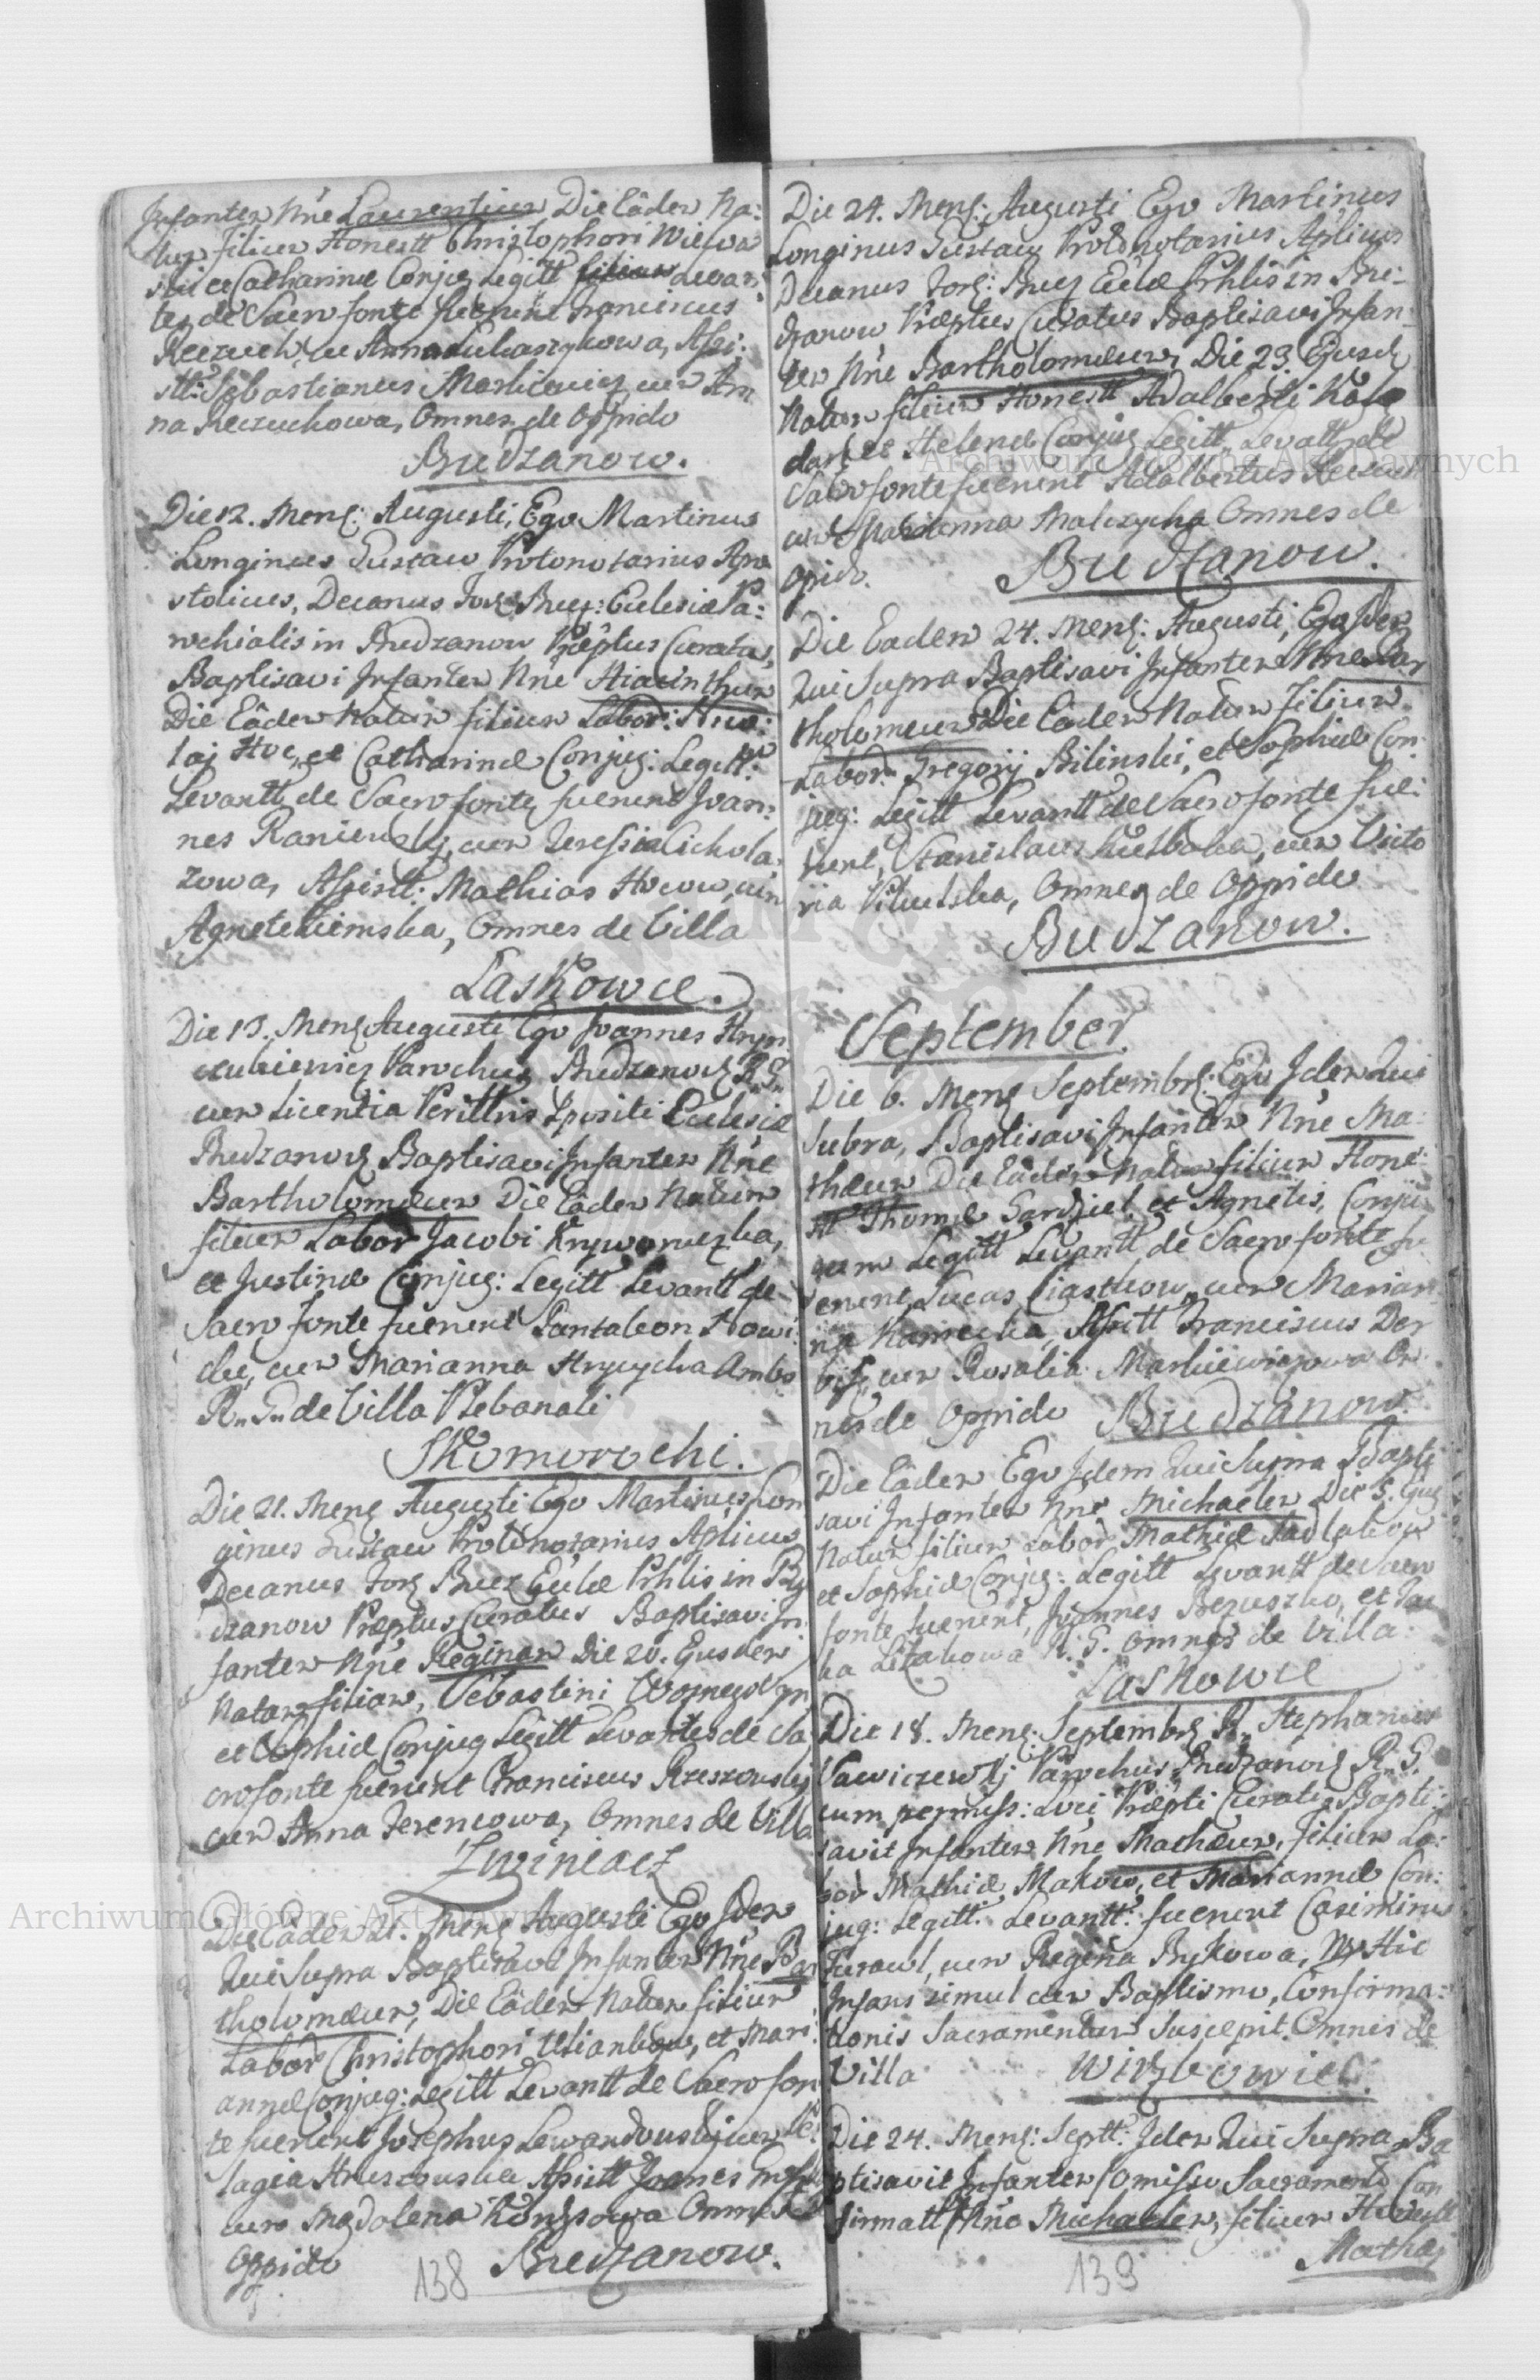 Infantem Nne Laurentium Die Eadem Na:
tum filium Honestt Christophori Wiewa
ski et Catharinæ Conjug Legitt Levan:
tes de Sacro fonte fuerunt Franciscus
Reczuch, cum Anna Lukaszykowa, Assi:
stt: Sebastianus Markiewicz cum An
na Reczuchowa, Omnes de Oppido
Budzanow.
Die 12. Mens: Augusti, Ego Martinus
Longinus Gustaw Protonotarius Apo
stolicus, Decanus Foris Bucz: Eclesiæ Pa:
rochialis in Budzanow Præptus Curatus,
Baptisavi Infantem Nne Hiacinthum
Die Eadem Natum filium Labor:
laj et Catharinæ Conjug: Legitt:
Levantt de Sacro fonte fuerunt Joan:
nes Raniewskj, cum Teressia Cichola:
zowa, Assistt: Mathias Hucow, cum
Agnete Ziemska, Omnes de Villa
Laskowce.
Die 13. Mens Augusti Ego Joannes Hryn
cukiewicz Parochus Budzanov R. G.
cum Licentia Perillris Xpositi Eclesiæ
Budzanov Baptisavi Infantem Nne
Bartholomæum Die Eadem Natum
filium Labor Jacobi Kryworuczka,
et Justinæ Conjug: Legitt Levantt de
Sacro fonte fuerunt Pantaleon Nowi:
cki, cum Marianna Hrycycha Ambo
R. G. de Villa Plebanali
Skomorochi.
Die 21. Mens Augusti Ego Martinus Lon
ginus Gustaw Protonotarius Aplicus
Decanus Foris Bucz Eclæ Prhlis in Bu
dzanow Præptus Curatus Baptisavi In
fantem Nne Reginam Die 20. Ejusdem
Natam filiam, Sebastini
et Sophiæ Conjug Legitt Levantes de Sa
cro fonte fuerunt Franciscus Rzeszowskj
cum Anna Jerencowa, Omnes de Villa
Zwiniacz
Die Eadem 21. Mens Augusti Ego Idem
Qui Supra Baptisavi Infantem Nne Bar
tholomæum, Die Eadem Natum filium
Labor Christophori et Mari:
annæ Conjug: Legitt Levantt de Sacro fon
te fuerunt Josephus Lewandowskj cum Pe:
lagia Hruszowska Assistt Joannes
cum Magdalena Omnes de
Oppido Budzanow.
138
Die 24. Mens: Augusti Ego Martinus
Longinus Gustaw Protonotarius Aplicus
Decanus Foris: Bucz Eclæ Prhlis in Bu:
dzanow, Præptus Curatus Baptisavi Infan
tem Nne Bartholomæum, Die 23. Ejusd
Natum filium Honestt Adalberti Kolo
darz et Helenæ Conjug Legitt, Levantt de
Sacro fonte fuerunt Adalbertus Reczuch
cum Marianna Malczycha Omnes de
Opido. Budzanow.
Die Eadem 24. Mens: Augusti, Ego Idem
Qui Supra Baptisavi Infantem Nne Bar
tholomæum Die Eadem Natum Filium
Labor: Gregorij Bilinski, et Sophiæ Con
jug: Legitt Levantt de Sacro fonte fue:
runt, Stanislaus Kielbaka, cum Victo
ria Omnes de Oppido
Budzanow.
September.
Die 6. Mens Septembr: Ego Idem Qui
Subra, Baptisavi Infantem Nne Ma:
thæum Die Eadem Natum filium Hone:
stt Thomæ Gardziel, et Agnetis, Conju
gum Legitt Levantt de Sacro fonte fu
erunt, Lucas Ciastkow, cum Marian
na Assistt Franciscus Der
bis, cum Rosalia Markiewiczowa Om
nes de Oppido Budzanow.
Die Eadem Ego Idem Qui Supra Bapti
savi Infantem Nne Michaelem Die 5. Ejus
Natum filium Labor Mathiæ Sadlakow
et Sophiæ Conjug: Legitt Levantt de Sacro
fonte fuerunt, Joannes Bezuszko, et Pau
la R. G. Omnes de Villa
Laskowce
Die 18. Mens: Septembr R. Stephanus
Sawiczewskj Parochus Budzanov R. G.
cum permiss: Loci Præpti Curati Bapti:
savit Infantem Nne Mathæum, Filium La:
bor Mathiæ Makow, et Mariannæ Con:
jug: Legitt. Levantt: fuerunt Casimirus
Furawl, cum Regina Bykowa, Hic
Infans simul cum Baptismo, Confirma:
tionis Sacramentum Suscepit. Omnes de
Villa Wierzbowiec.
Die 24. Mens: Septt: Idem Qui Supra Ba
ptisavit Infantem (Omisso Sacramento Con
firmatt) Nne Michaelem, filium Honestt
Mathaj
139
Archiwum Główne Akt Dawnych
Archiwum Główne Akt Dawnych